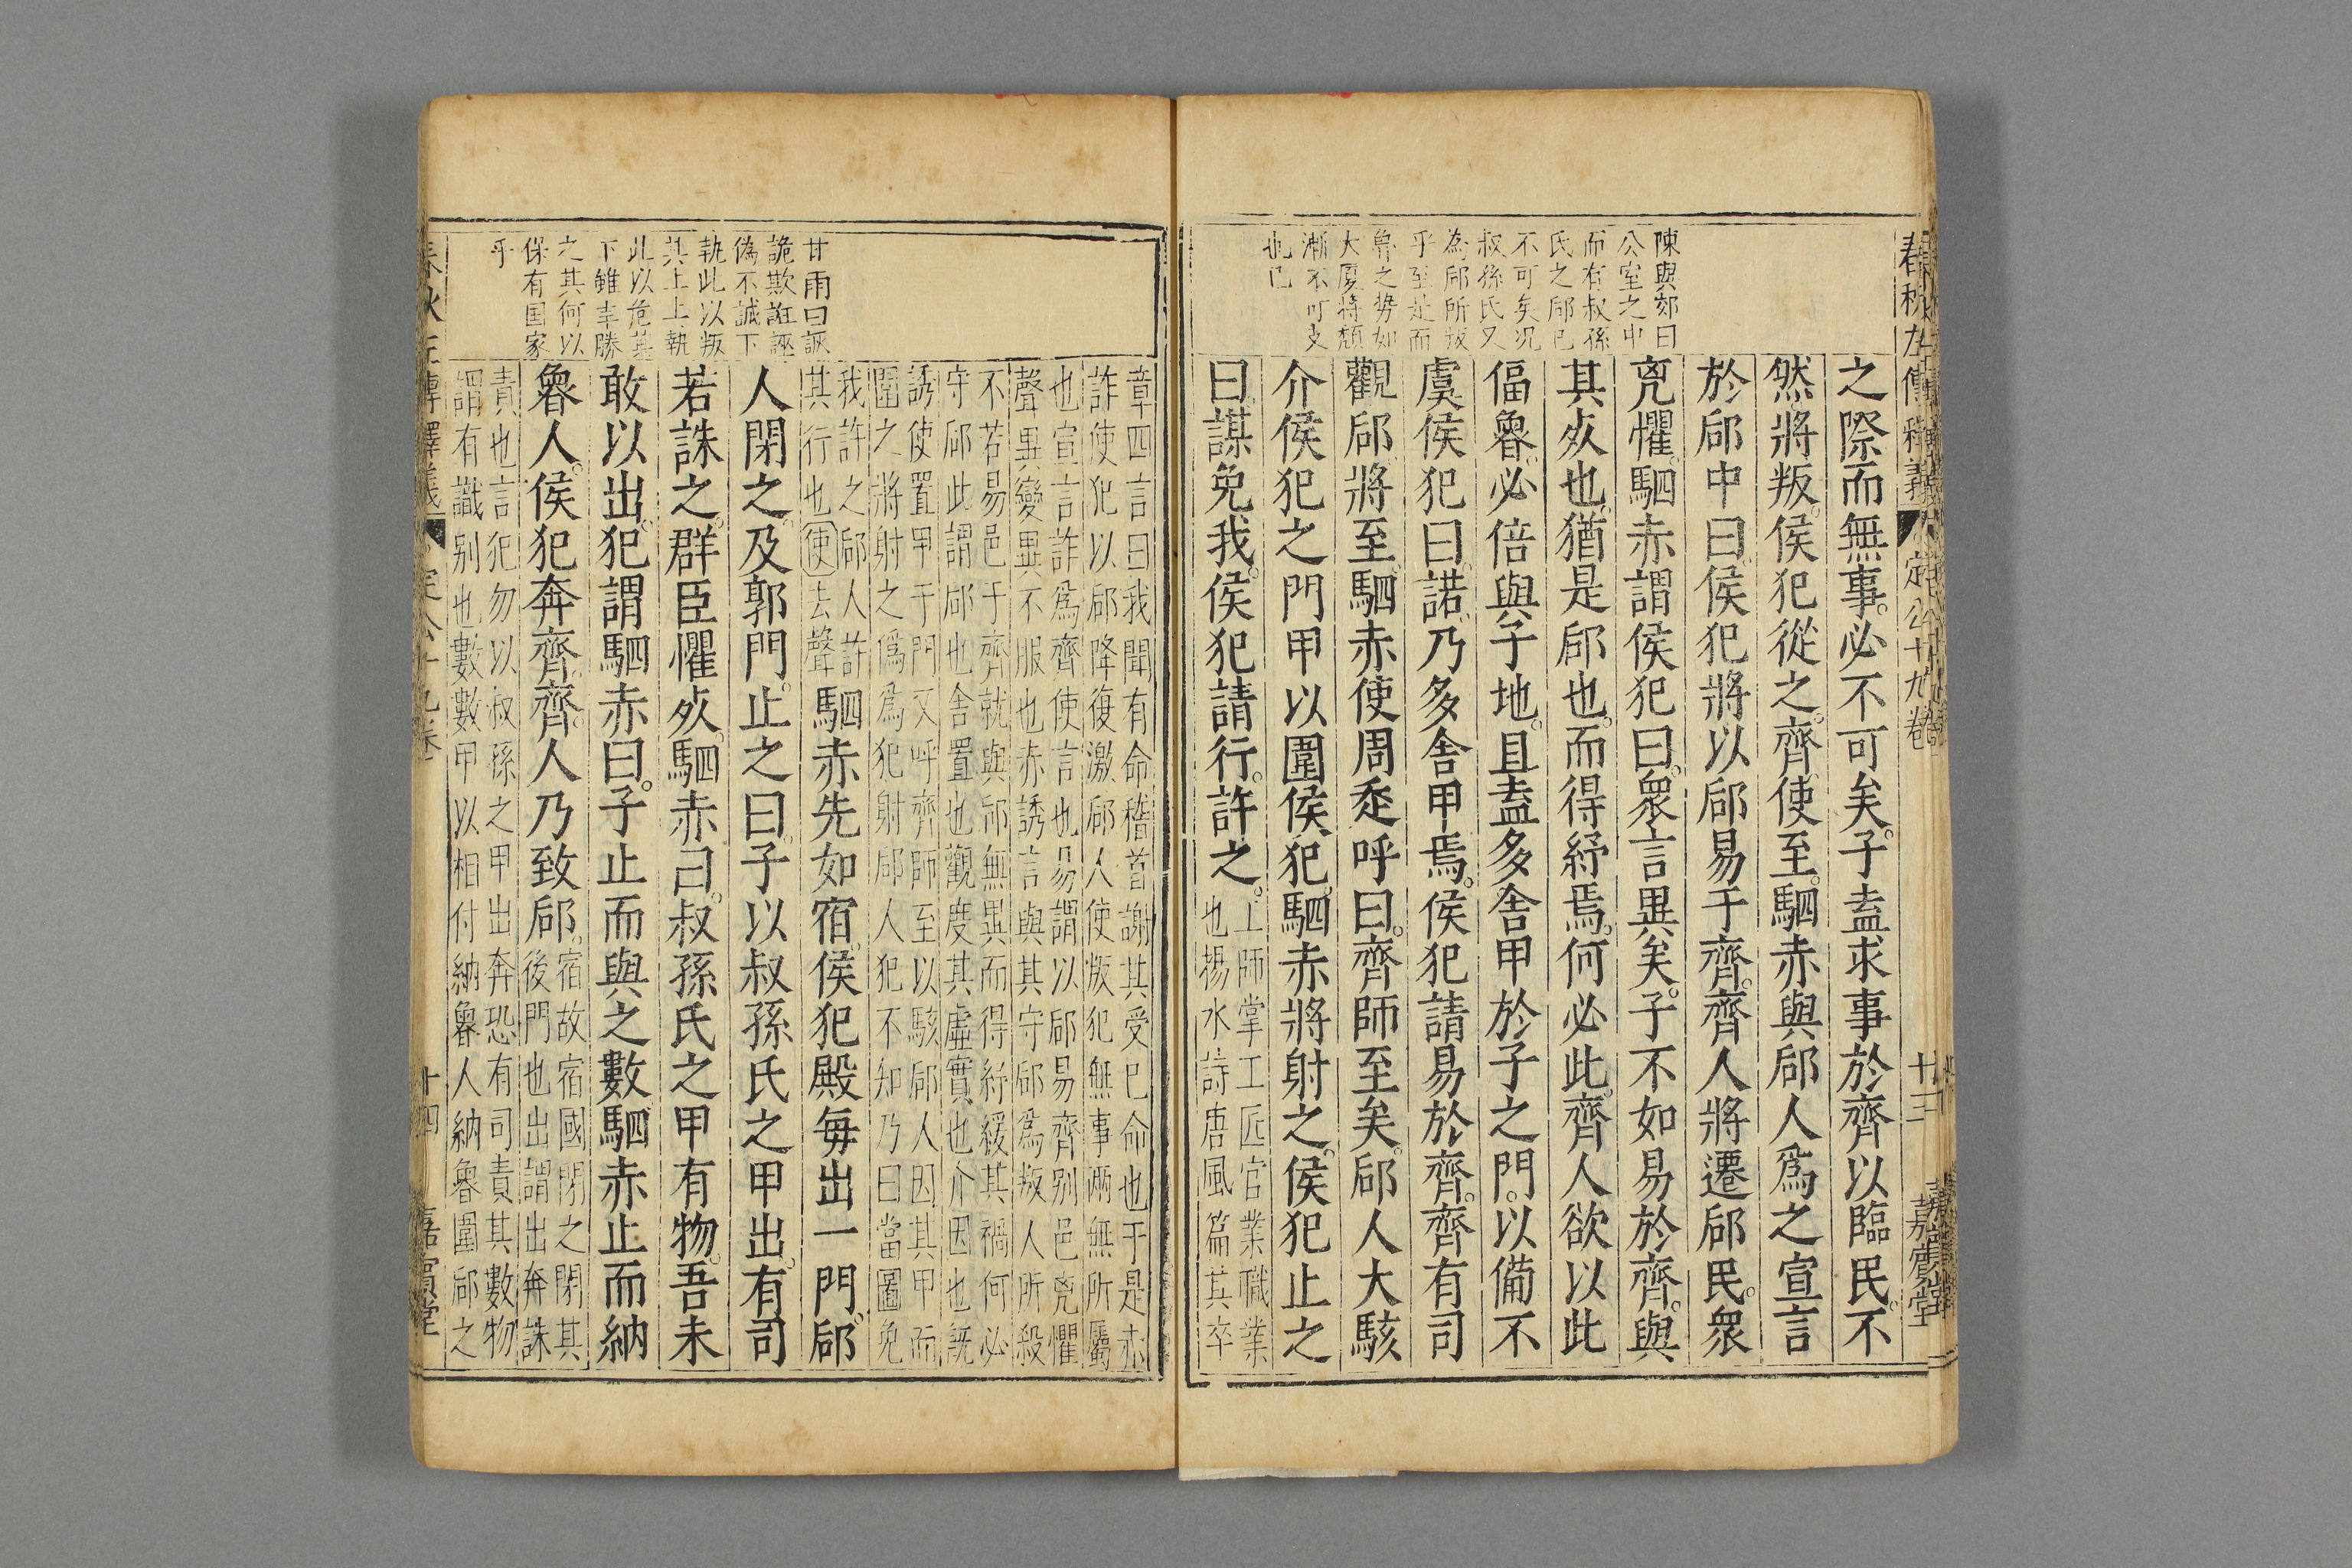 春秋左傳釋義
定公十九卷
十三
嘉賓堂
陳與郊曰
公室之中
而有叔孫
氏之郈已
不可矣况
叔孫氏又
為郈所叛
乎至是而
魯之勢如
大厦將頽
漸不可支
也已
之際而無事必不可矣子盍求事於齊以臨民不
然將叛侯犯從之齊使至駟赤與郈人爲之宣言
於郈中曰侯犯將以郈易于齊齊人將遷郈民衆
兇懼駟赤謂侯犯曰衆言異矣子不如易於齊與
其死也猶是郈也而得紓焉何必此齊人欲以此
偪魯必倍與子地且盍多舍甲於子之門以備不
虞侯犯曰諾乃多舍甲焉侯犯請易於齊齊有司
觀郈將至駟赤使周走呼曰齊師至矣郈人大駭
介侯犯之門甲以圍侯犯駟赤將射之侯犯止之
曰謀免我侯犯請行許之
工師掌工匠官業職業
也揚水詩唐風篇其卒
甘雨曰詼
詭欺誑誣
偽不誠下
執此以叛
其上上執
此以危其
下雖幸勝
之其何以
保有国家
乎
章四言曰我聞有命稽首謝其受已命也于是赤
詐使犯以郈降復激郈人使叛犯無事兩無所屬
也宣言詐爲齊使言也易謂以郈易齊别邑兇懼
聲異變異不服也赤誘言與其守郈爲叛人所殺
不若易邑于齊就與郈無異而得紓緩其禍何必
守郈此謂郈也舍置也觀度其虛實也介因也既
誘使置甲于門又呼齊師至以駭郈人因其甲而
圍之將射之偽爲犯射郈人犯不知乃曰當圖免
我許之郈人許
其行也使去聲
駟赤先如宿侯犯殿每出一門郈
人閉之及郭門止之曰子以叔孫氏之甲出有司
若誅之群臣懼死駟赤曰叔孫氏之甲有物吾未
敢以出犯謂駟赤曰子止而與之數駟赤止而納
魯人侯犯奔齊齊人乃致郈
宿故宿國閉之閉其
後門也出謂出奔誅
責也言犯勿以叔孫之甲出奔恐有司責其數物
謂有識别也數數甲以相付納魯人納魯圍郈之
春秋左傳釋義
定公十九卷
十四
嘉賓堂